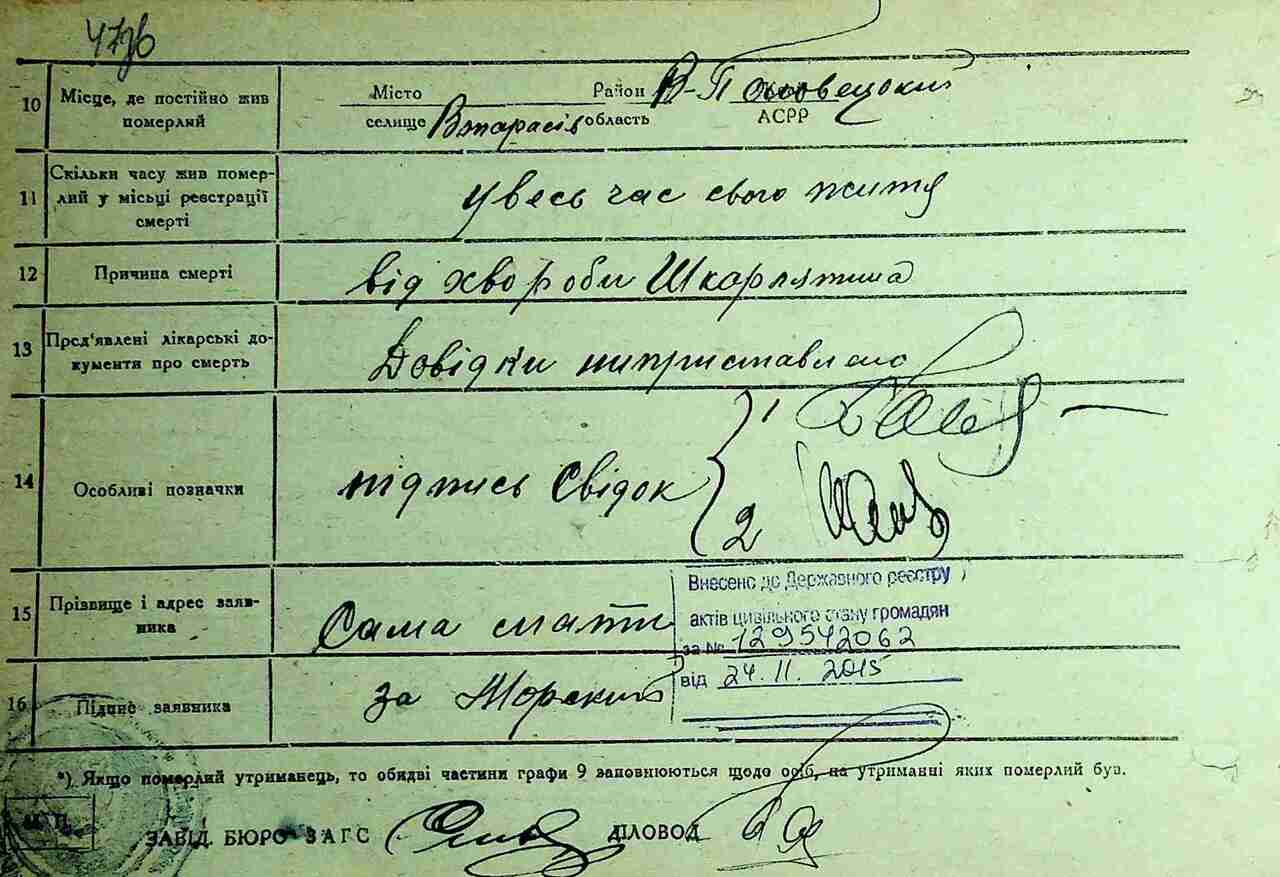 10 Місце, де постійно жив Місто Район В-Половецький
померлий селище Втарасів область АСРР
Скільки часу жив помер-
11 лий у місці реєстрації увесь час свого життя
смерті
12 Причина смерті від хвороби Шкорлятина
13 Пред'явлені лікарські до-
кументи про смерть Довідки ниприставлено
1
14 Особливі позначки підпись Свідок
2
Внесено до Державного реєстру
15 Прізвище і адрес заяв- актів цивільного стану громадян
ника Сама мати за № 129542062
від 24.11.2015
16 Підпис заявника за
*) Якщо померлий утриманець, то обидві частини графи 9 заповнюються щодо осіб, на утриманні яких померлий був.
М. П.
ЗАВІД. БЮРО ЗАГС ДІЛОВОД